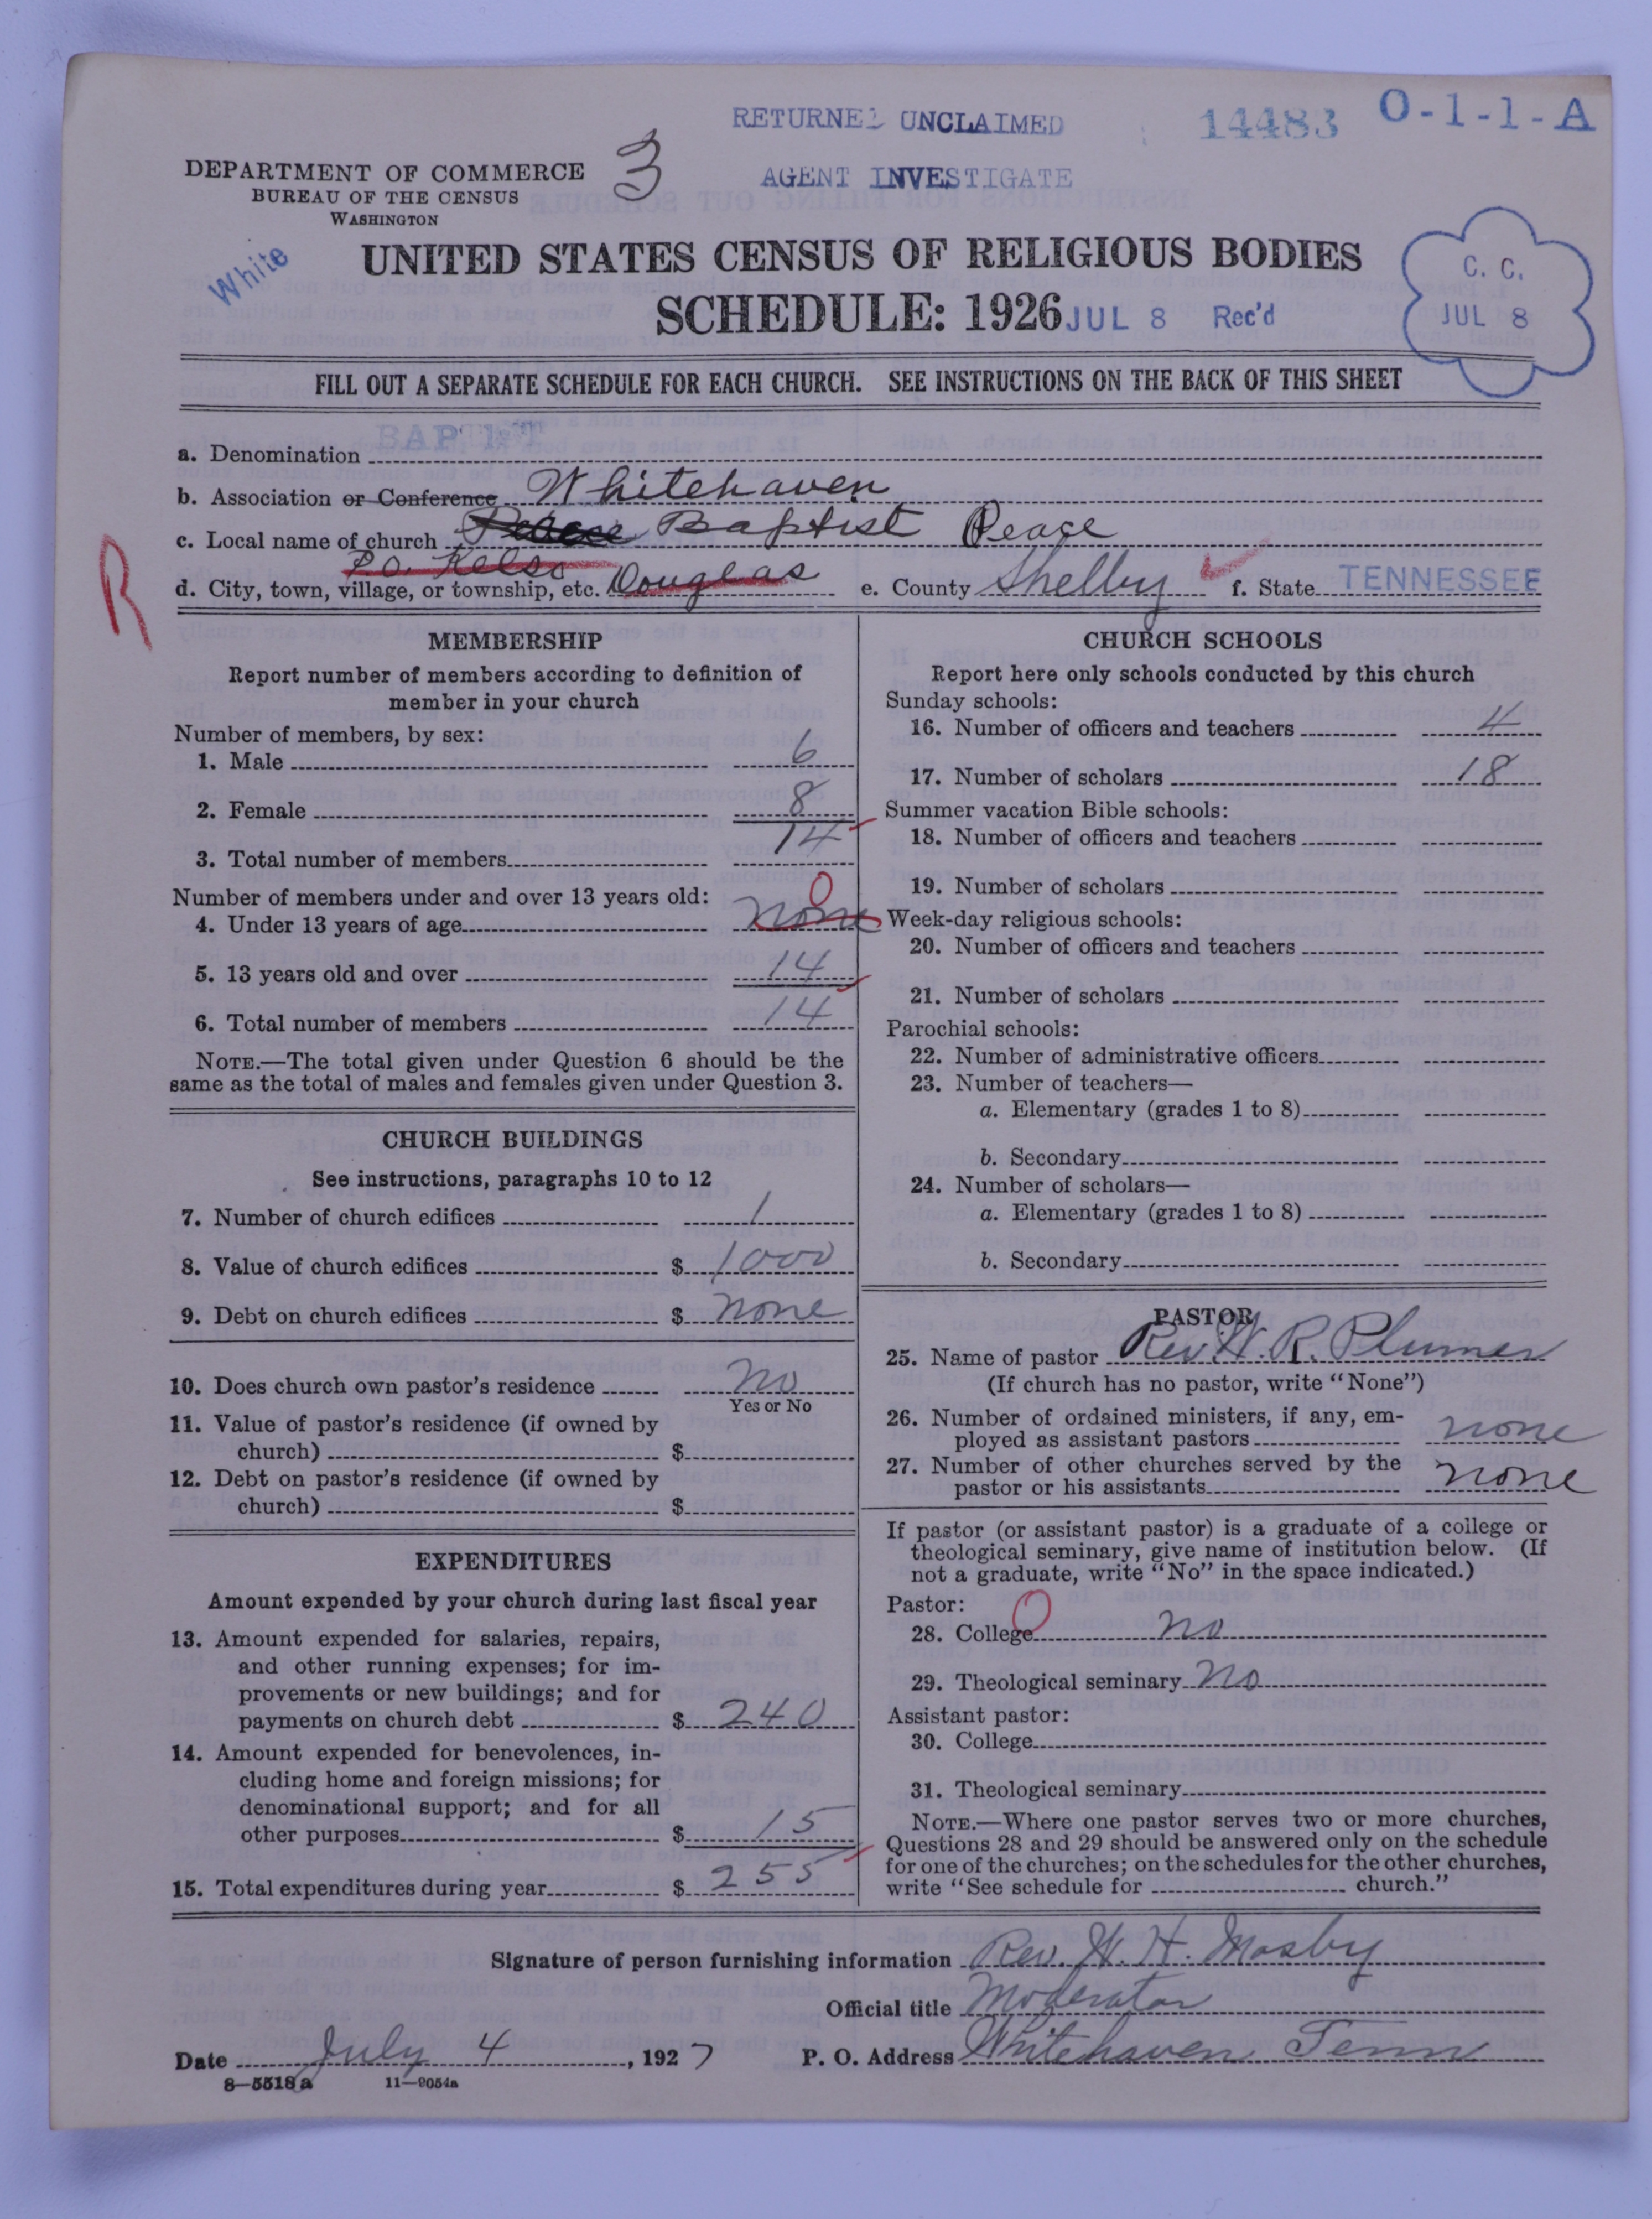 RETURNED UNCLAIMED
14483
O-1-1-A
AGENT INVESTIGATE
3
DEPARTMENT OF COMMERCE
BUREAU OF THE CENSUS
WASHINGTON
White
UNITED STATES CENSUS OF RELIGIOUS BODIES
SCHEDULE: 1926 JUL 8 Rec'd
C. C.
JUL 8
FILL OUT A SEPARATE SCHEDULE FOR EACH CHURCH. SEE INSTRUCTIONS ON THE BACK OF THIS SHEET
a. Denomination BAPTIST
b. Association or Conference Whitehaven
c. Local name of church Baptist Peace
P.O. Kelso
d. City, town, village, or township, etc. Douglas e. County Shelby f. State TENNESSEE
R
MEMBERSHIP
Report number of members according to definition of
member in your church
Number of members, by sex:
1. Male 6
2. Female 8
3. Total number of members 14
Number of members under and over 13 years old: 0
4. Under 13 years of age none
5. 13 years old and over 14
6. Total number of members 14
NOTE.—The total given under Question 6 should be the
same as the total of males and females given under Question 3.
CHURCH BUILDINGS
See instructions, paragraphs 10 to 12
7. Number of church edifices 1
8. Value of church edifices $ 1000
9. Debt on church edifices $ none
10. Does church own pastor's residence no
Yes or No
11. Value of pastor's residence (if owned by
church) $
12. Debt on pastor's residence (if owned by
church) $
EXPENDITURES
Amount expended by your church during last fiscal year
13. Amount expended for salaries, repairs,
and other running expenses; for im-
provements or new buildings; and for
payments on church debt $ 240
14. Amount expended for benevolences, in-
cluding home and foreign missions; for
denominational support; and for all
other purposes $ 15
15. Total expenditures during year $ 255
CHURCH SCHOOLS
Report here only schools conducted by this church
Sunday schools:
16. Number of officers and teachers 4
17. Number of scholars 18
Summer vacation Bible schools:
18. Number of officers and teachers
19. Number of scholars
Week-day religious schools:
20. Number of officers and teachers
21. Number of scholars
Parochial schools:
22. Number of administrative officers
23. Number of teachers—
a. Elementary (grades 1 to 8)
b. Secondary
24. Number of scholars—
a. Elementary (grades 1 to 8)
b. Secondary
PASTOR
25. Name of pastor Rev. W. R. Plumer
(If church has no pastor, write "None")
26. Number of ordained ministers, if any, em-
ployed as assistant pastors none
27. Number of other churches served by the
pastor or his assistants none
If pastor (or assistant pastor) is a graduate of a college or
theological seminary, give name of institution below. (If
not a graduate, write "No" in the space indicated.)
Pastor: 0
28. College no
29. Theological seminary no
Assistant pastor:
30. College
31. Theological seminary
NOTE.—Where one pastor serves two or more churches,
Questions 28 and 29 should be answered only on the schedule
for one of the churches; on the schedules for the other churches,
write "See schedule for church."
Signature of person furnishing information Rev. W. H. Mosby
Official title Moderator
Date July 4, 1927 P. O. Address Whitehaven Tenn
8—5518 a 11—9054a